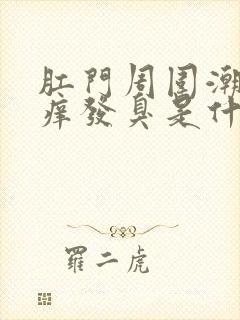 肛門周圍潮
痒發臭是什
羅二虎